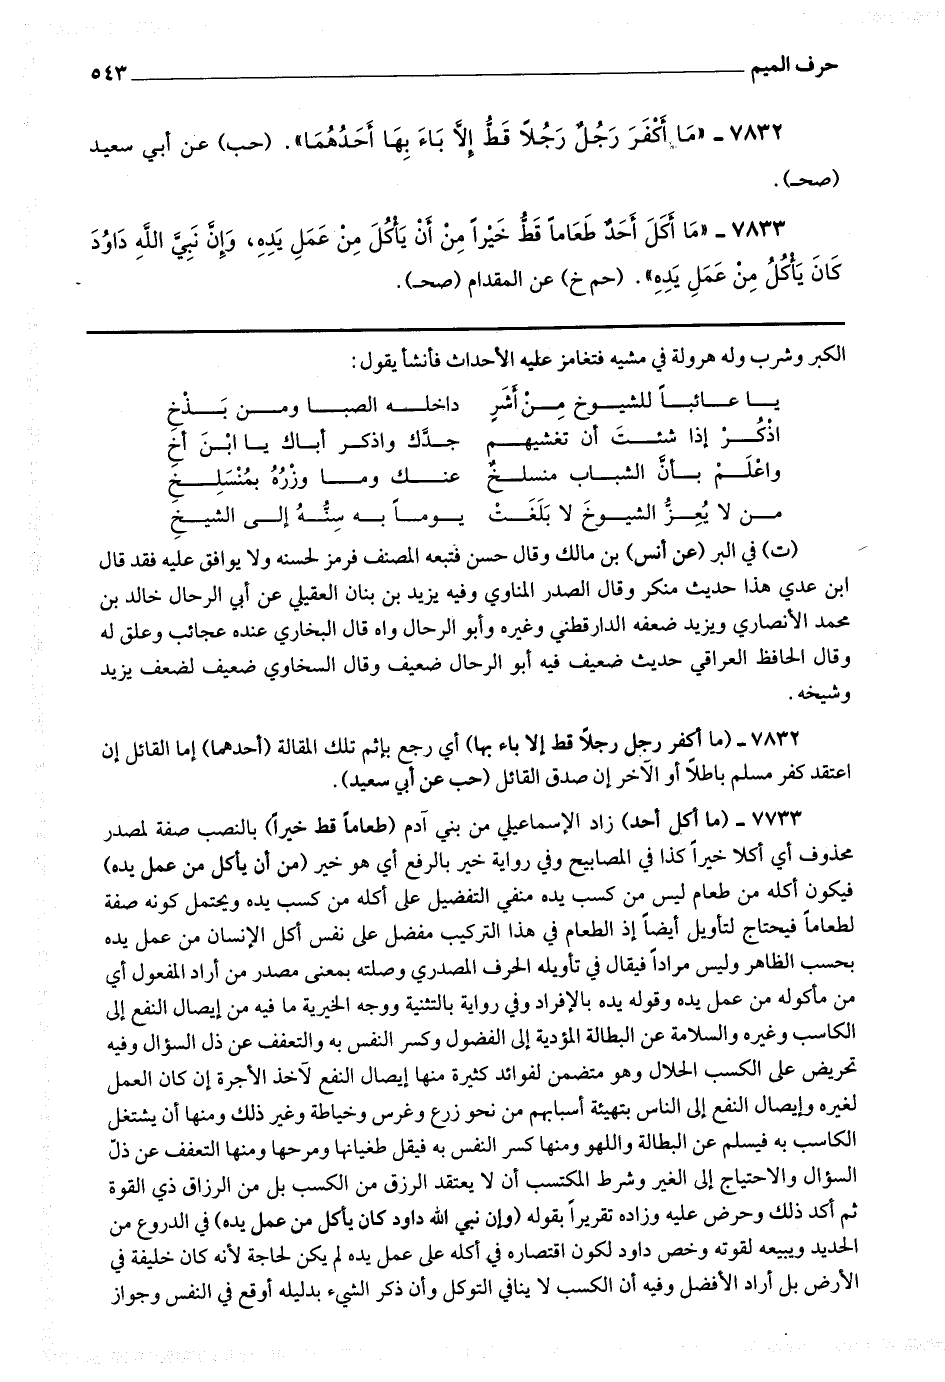 حرف الميم ٥٤٣
٧٨٣٢ ـ «مَا أَكْفَرَ رَجُلٌ رَجُلاً قَطُّ إِلَّا بَاءَ بِهَا أَحَدُهُمَا». (حب) عن أبي سعيد
(صحـ).
٧٨٣٣ ـ «مَا أَكَلَ أَحَدٌ طَعَاماً قَطُّ خَيْراً مِنْ أَنْ يَأْكُلَ مِنْ عَمَلِ يَدِهِ، وَإِنَّ نَبِيَّ اللَّهِ دَاوُدَ
كَانَ يَأْكُلُ مِنْ عَمَلِ يَدِهِ». (حم خ) عن المقدام (صحـ).
الكبر وشرب وله هرولة في مشيه فتغامز عليه الأحداث فأنشأ يقول:
يـا عـائبـاً للشيـوخ مِـنْ أَشَرٍ داخلـه الصبـا ومـن بَـذْخِ
اذْكُـرْ إذا شئـتَ أن تغشيهـم جـدَّك واذكـر أبـاك يـا ابْـنَ أَخِ
واعْلَـمْ بـأنَّ الشبـاب منسلـخٌ عنـك ومـا وِزْرُهُ بِمُنْسَلِـخِ
مـن لا يُعِـزُّ الشيـوخَ لا بَلَغَـتْ يـومـاً بـه سِنُّـهُ إلـى الشيـخِ
(ت) في البر (عن أنس) بن مالك وقال حسن فتبعه المصنف فرمز لحسنه ولا يوافق عليه فقد قال
ابن عدي هذا حديث منكر وقال الصدر المناوي وفيه يزيد بن بنان العقيلي عن أبي الرحال خالد بن
محمد الأنصاري ويزيد ضعفه الدارقطني وغيره وأبو الرحال واه قال البخاري عنده عجائب وعلق له
وقال الحافظ العراقي حديث ضعيف فيه أبو الرحال ضعيف وقال السخاوي ضعيف لضعف يزيد
وشيخه.
٧٨٣٢ ـ (ما أكفر رجل رجلاً قط إلا باء بها) أي رجع بإثم تلك المقالة (أحدهما) إما القائل إن
اعتقد كفر مسلم باطلاً أو الآخر إن صدق القائل (حب عن أبي سعيد).
٧٧٣٣ ـ (ما أكل أحد) زاد الإسماعيلي من بني آدم (طعاماً قط خيراً) بالنصب صفة لمصدر
محذوف أي أكلا خيراً كذا في المصابيح وفي رواية خير بالرفع أي هو خير (من أن يأكل من عمل يده)
فيكون أكله من طعام ليس من كسب يده منفي التفضيل على أكله من كسب يده ويحتمل كونه صفة
لطعاماً فيحتاج لتأويل أيضاً إذ الطعام في هذا التركيب مفضل على نفس أكل الإنسان من عمل يده
بحسب الظاهر وليس مراداً فيقال في تأويله الحرف المصدري وصلته بمعنى مصدر من أراد المفعول أي
من مأكوله من عمل يده وقوله يده بالإفراد وفي رواية بالتثنية ووجه الخيرية ما فيه من إيصال النفع إلى
الكاسب وغيره والسلامة عن البطالة المؤدية إلى الفضول وكسر النفس به والتعفف عن ذل السؤال وفيه
تحريض على الكسب الحلال وهو متضمن لفوائد كثيرة منها إيصال النفع لآخذ الأجرة إن كان العمل
لغيره وإيصال النفع إلى الناس بتهيئة أسبابهم من نحو زرع وغرس وخياطة وغير ذلك ومنها أن يشتغل
الكاسب به فيسلم عن البطالة واللهو ومنها كسر النفس به فيقل طغيانها ومرحها ومنها التعفف عن ذلّ
السؤال والاحتياج إلى الغير وشرط المكتسب أن لا يعتقد الرزق من الكسب بل من الرزاق ذي القوة
ثم أكد ذلك وحرض عليه وزاده تقريراً بقوله (وإن نبي الله داود كان يأكل من عمل يده) في الدروع من
الحديد ويبيعه لقوته وخص داود لكون اقتصاره في أكله على عمل يده لم يكن لحاجة لأنه كان خليفة في
الأرض بل أراد الأفضل وفيه أن الكسب لا ينافي التوكل وأن ذكر الشيء بدليله أوقع في النفس وجواز